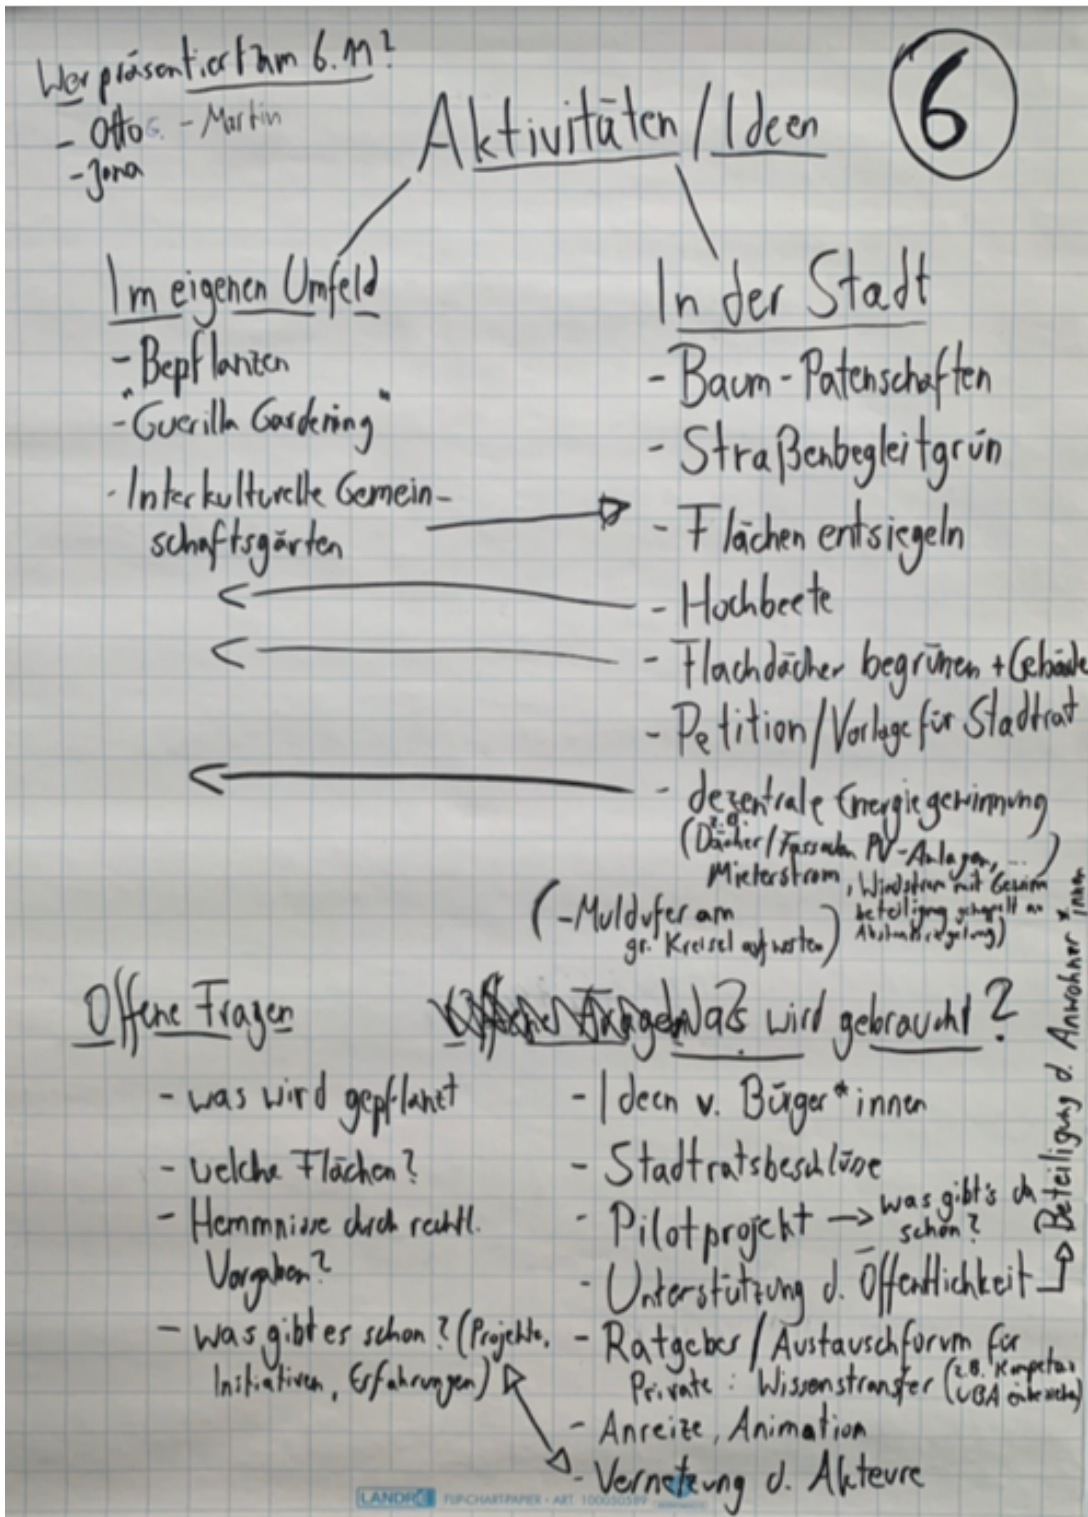 Wer präsentiert am 6.11?
- Otto G. - Martin
- Jona
6
Aktivitäten / Ideen
Im eigenen Umfeld
- Bepflanzen
- "Guerilla Gardening"
- Interkulturelle Gemein-
schaftsgärten
In der Stadt
- Baum-Patenschaften
- Straßenbegleitgrün
- Flächen entsiegeln
- Hochbeete
- Flachdächer begrünen + Gebäude
- Petition/Vorlage für Stadtrat
- dezentrale Energiegewinnung
z.B.
(Dächer/Fassaden PV-Anlagen, ...)
Mieterstrom, Windstrom mit Gewinn
beteiligung gekoppelt an
Abstandsregelung)
(- Muldufer am
gr. Kreisel aufwerten)
Offene Fragen
- was wird gepflanzt
- welche Flächen?
- Hemmnisse durch rechtl.
Vorgaben?
- was gibt es schon? (Projekte,
Initiativen, Erfahrungen)
Was wird gebraucht?
- Ideen v. Bürger*innen
- Stadtratsbeschlüsse
- Pilotprojekt → was gibt's da
schon?
- Unterstützung d. Öffentlichkeit
Beteiligung d. Anwohner*innen
- Ratgeber / Austauschforum für
Private: Wissenstransfer (z.B.
UBA
- Anreize, Animation
- Vernetzung d. Akteure
LANDRÉ FLIP-CHART-PAPIER · ART. 100050589